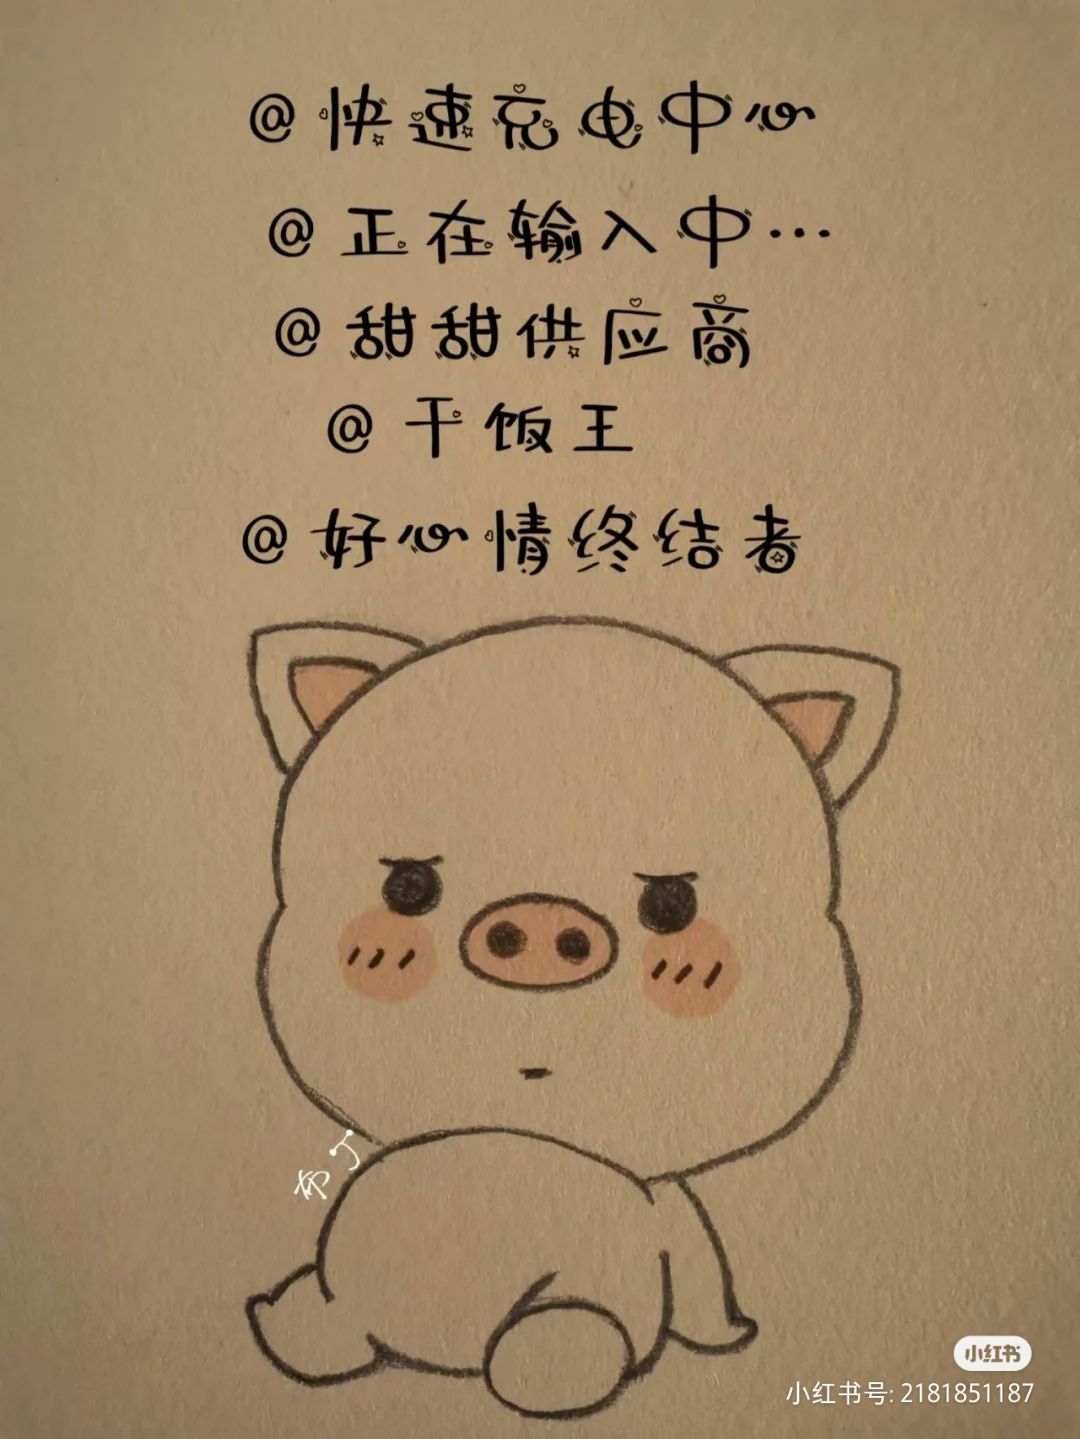 @快速充电中心
@正在输入中…
@甜甜供应商
@干饭王
@好心情终结者
布丁
小红书
小红书号: 2181851187